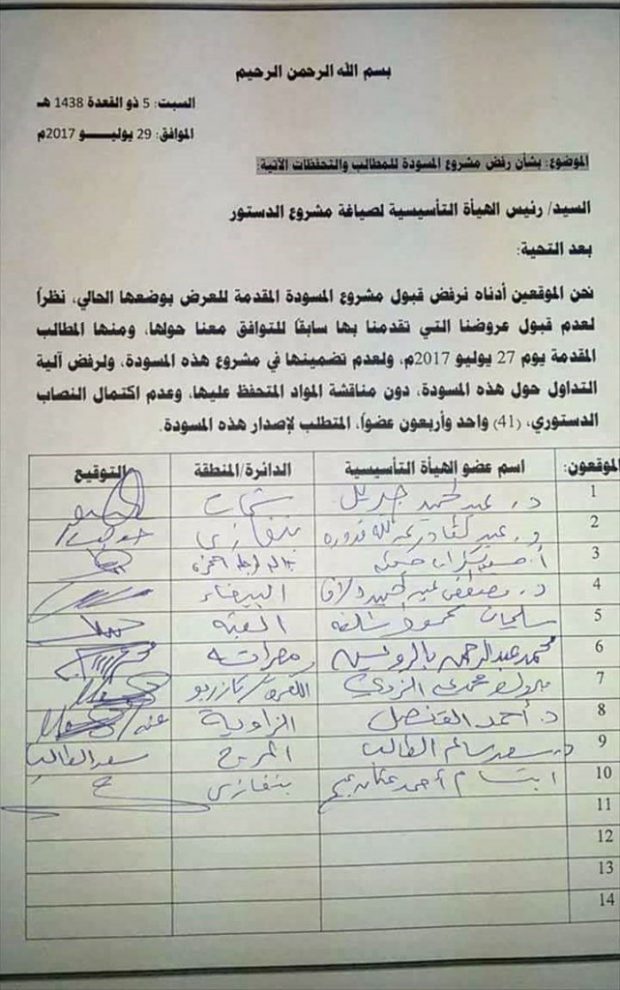 بسم الله الرحمن الرحيم
السبت: 5 ذو القعدة 1438 هـ
الموافق: 29 يوليــــو 2017م
الموضوع: بشأن رفض مشروع المسودة للمطالب والتحفظات الآتية:
السيد/ رئيس الهيأة التأسيسية لصياغة مشروع الدستور
بعد التحية:
نحن الموقعين أدناه نرفض قبول مشروع المسودة المقدمة للعرض بوضعها الحالي، نظراً
لعدم قبول عروضنا التي تقدمنا بها سابقًا للتوافق معنا حولها، ومنها المطالب
المقدمة يوم 27 يوليو 2017م، ولعدم تضمينها في مشروع هذه المسودة، ولرفض آلية
التداول حول هذه المسودة، دون مناقشة المواد المتحفظ عليها، وعدم اكتمال النصاب
الدستوري، (41) واحد وأربعون عضواً، المتطلب لإصدار هذه المسودة.
الموقعون: اسم عضو الهيأة التأسيسية الدائرة/المنطقة التوقيع
1 د. عبد الحميد جبريل شحات
2 د. عبد القادر عبد الله قدوره بنغازي
3
4 د. مصطفى عبد الحميد البيضاء
5 سليمان محمود القبه
6 محمد عبد الرحمن بالرويس مصراته
7 الكفرة/تازربو
8 د. أحمد القنصل الزاوية عنه/
9 د. سعد سالم الطالب المرج سعد الطالب
10 ابتسام أحمد عثمان بنغازي
11
12
13
14